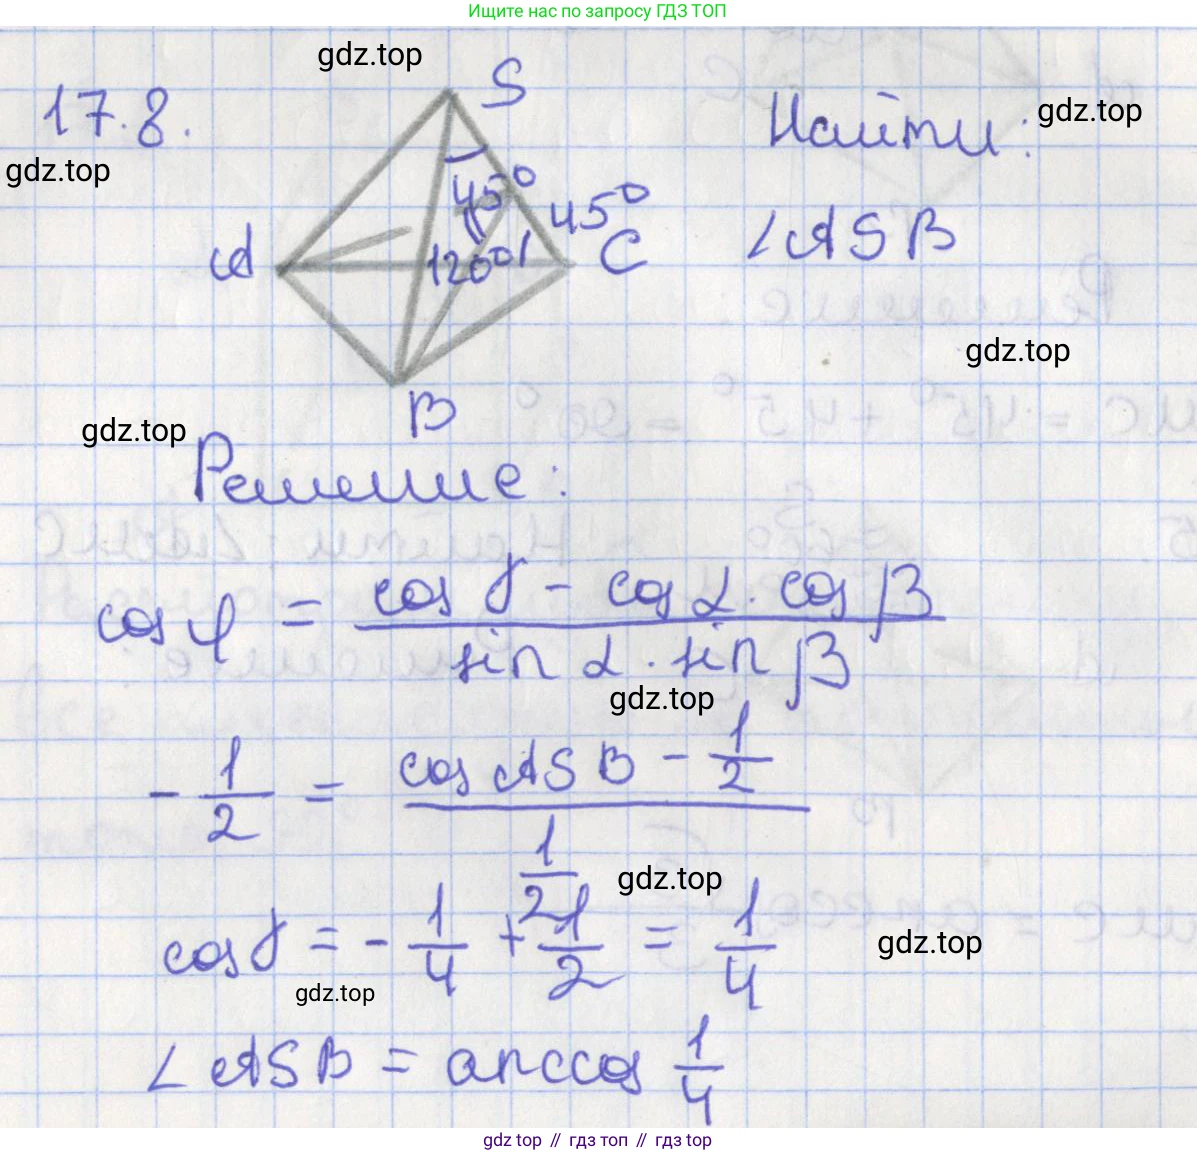 Ищите нас по запросу ГДЗ ТОП
gdz.top
17.8.
S
Найти:
gdz.top
gdz.top
45°
45°
∠ASB
A
120°
C
gdz.top
B
gdz.top
Решение:
cos φ = (cos γ - cos α · cos β) / (sin α · sin β)
gdz.top
- 1/2 = (cos ASB - 1/2) / (1/2)
gdz.top
cos γ = - 1/4 + 1/2 = 1/4
gdz.top
gdz.top
∠ASB = arccos 1/4
gdz.top // гдз топ // gdz top